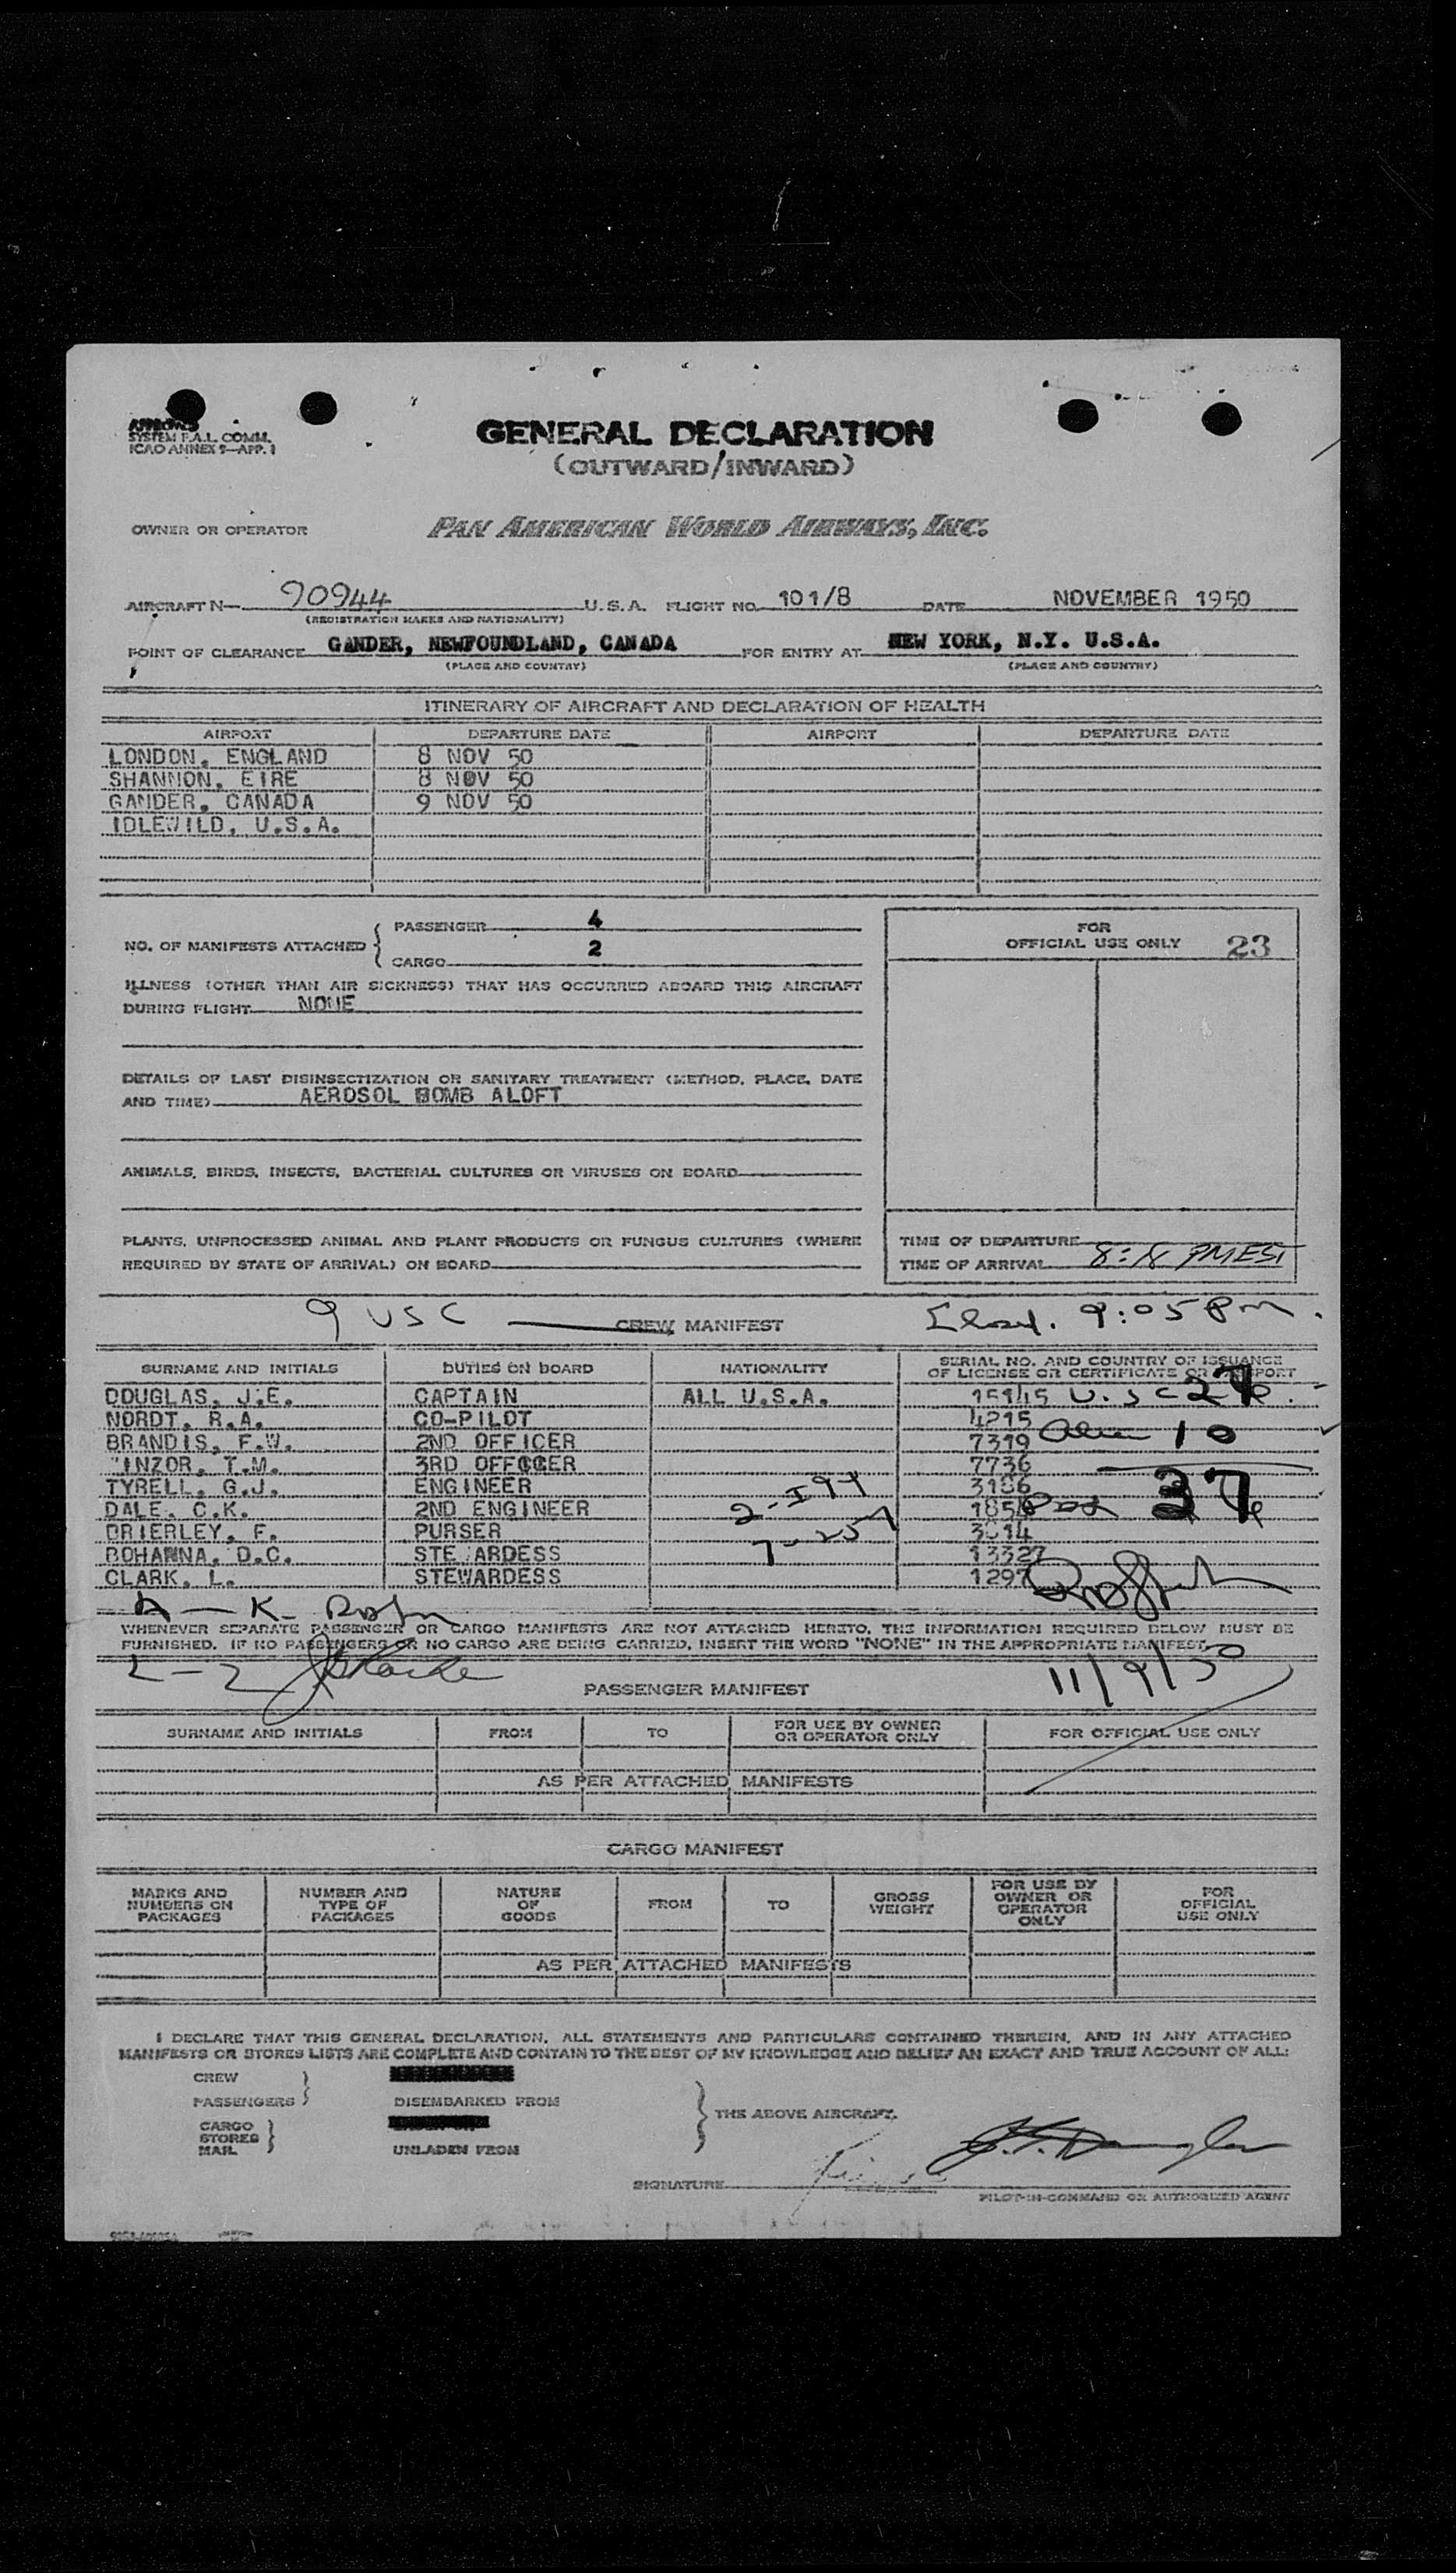 APPROVED
SYSTEM F.A.L. COMM.
ICAO ANNEX 9—APP. 1
GENERAL DECLARATION
(OUTWARD/INWARD)
OWNER OR OPERATOR PAN AMERICAN WORLD AIRWAYS, INC.
AIRCRAFT N— 90944 U.S.A. FLIGHT NO. 101/8 DATE NOVEMBER 1950
(REGISTRATION MARKS AND NATIONALITY)
POINT OF CLEARANCE GANDER, NEWFOUNDLAND, CANADA FOR ENTRY AT NEW YORK, N.Y. U.S.A.
(PLACE AND COUNTRY) (PLACE AND COUNTRY)
ITINERARY OF AIRCRAFT AND DECLARATION OF HEALTH
AIRPORT DEPARTURE DATE AIRPORT DEPARTURE DATE
LONDON, ENGLAND 8 NOV 50
SHANNON, EIRE 8 NOV 50
GANDER, CANADA 9 NOV 50
IDLEWILD, U.S.A.
NO. OF MANIFESTS ATTACHED { PASSENGER 4
CARGO 2
FOR
OFFICIAL USE ONLY 23
ILLNESS (OTHER THAN AIR SICKNESS) THAT HAS OCCURRED ABOARD THIS AIRCRAFT
DURING FLIGHT NONE
DETAILS OF LAST DISINSECTIZATION OR SANITARY TREATMENT (METHOD, PLACE, DATE
AND TIME) AEROSOL BOMB ALOFT
ANIMALS, BIRDS, INSECTS, BACTERIAL CULTURES OR VIRUSES ON BOARD
PLANTS, UNPROCESSED ANIMAL AND PLANT PRODUCTS OR FUNGUS CULTURES (WHERE
REQUIRED BY STATE OF ARRIVAL) ON BOARD
TIME OF DEPARTURE
TIME OF ARRIVAL 8:18 PMEST
9 USC CREW MANIFEST 9:05 PM.
SURNAME AND INITIALS DUTIES ON BOARD NATIONALITY SERIAL NO. AND COUNTRY OF ISSUANCE
OF LICENSE OR CERTIFICATE OR PASSPORT
DOUGLAS, J.E. CAPTAIN ALL U.S.A. 15145 U.S.C 27
NORDT, R.A. CO-PILOT 4215
BRANDIS, F.W. 2ND OFFICER 7319 Alien 10
INZOR, T.M. 3RD OFFCCER 7736
TYRELL, G.J. ENGINEER 3186 37
DALE, C.K. 2ND ENGINEER 2-I94
BRIERLEY, F. PURSER 3814 7-257
BOHANNA, D.C. STE ARDESS 13327
CLARK, L. STEWARDESS 1297
WHENEVER SEPARATE PASSENGER OR CARGO MANIFESTS ARE NOT ATTACHED HERETO, THE INFORMATION REQUIRED BELOW MUST BE
FURNISHED. IF NO PASSENGERS OR NO CARGO ARE BEING CARRIED, INSERT THE WORD "NONE" IN THE APPROPRIATE MANIFEST.
11/9/50
PASSENGER MANIFEST
SURNAME AND INITIALS FROM TO FOR USE BY OWNER
OR OPERATOR ONLY FOR OFFICIAL USE ONLY
AS PER ATTACHED MANIFESTS
CARGO MANIFEST
MARKS AND
NUMBERS ON
PACKAGES NUMBER AND
TYPE OF
PACKAGES NATURE
OF
GOODS FROM TO GROSS
WEIGHT FOR USE BY
OWNER OR
OPERATOR
ONLY FOR
OFFICIAL
USE ONLY
AS PER ATTACHED MANIFESTS
I DECLARE THAT THIS GENERAL DECLARATION, ALL STATEMENTS AND PARTICULARS CONTAINED THEREIN, AND IN ANY ATTACHED
MANIFESTS OR STORES LISTS ARE COMPLETE AND CONTAIN TO THE BEST OF MY KNOWLEDGE AND BELIEF AN EXACT AND TRUE ACCOUNT OF ALL:
CREW
PASSENGERS } DISEMBARKED FROM
CARGO
STORES
MAIL } UNLADEN FROM
} THE ABOVE AIRCRAFT.
SIGNATURE J.E. Douglas
PILOT-IN-COMMAND OR AUTHORIZED AGENT